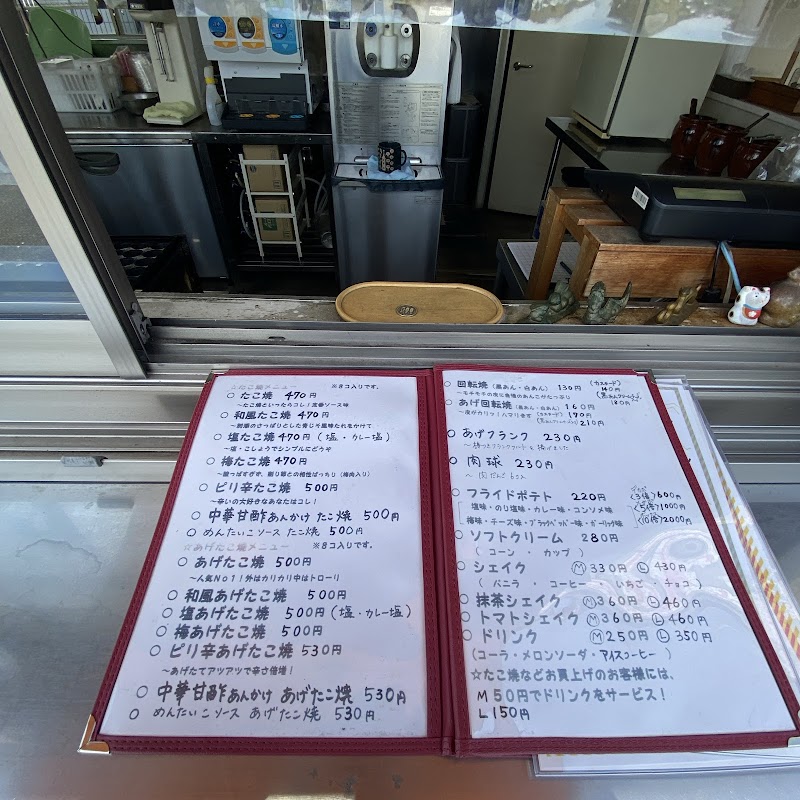 ☆たこ焼メニュー　※8コ入りです。
○ たこ焼 470円
～たこ焼といったらコレ！定番ソース味
○ 和風たこ焼 470円
○ 塩たこ焼 470円 (塩・カレー塩)
～塩・こしょうでシンプルにどうぞ
○ 梅たこ焼 470円
○ ピリ辛たこ焼 500円
～辛いの大好きなあなたはコレ！
○ 中華甘酢あんかけ たこ焼 500円
○ めんたいこソース たこ焼 500円
☆あげたこ焼メニュー　※8コ入りです。
○ あげたこ焼 500円
～人気No1！外はカリカリ中はトローリ
○ 和風あげたこ焼 500円
○ 塩あげたこ焼 500円 (塩・カレー塩)
○ 梅あげたこ焼 500円
○ ピリ辛あげたこ焼 530円
～あげたてアツアツで辛さ倍増！
○ 中華甘酢あんかけ あげたこ焼 530円
○ めんたいこソース あげたこ焼 530円
○ 回転焼 (黒あん・白あん) 130円 (カスタード) 140円
(黒あんクリームチーズ) 180円
○ あげ回転焼 (黒あん・白あん) 160円
～皮がカリッ！ハマります (カスタード) 170円
210円
○ あげフランク 230円
○ 肉球 230円
～肉だんご 6コ入
○ フライドポテト 220円 〈3倍〉600円
塩味・のり塩味・カレー味・コンソメ味 〈5倍〉1000円
梅味・チーズ味・ブラックペッパー味・ガーリック味 〈10倍〉2000円
○ ソフトクリーム 280円
( コーン ・ カップ )
○ シェイク Ⓜ330円 Ⓛ430円
( バニラ ・ コーヒー ・ いちご ・ チョコ )
○ 抹茶シェイク Ⓜ360円 Ⓛ460円
○ トマトシェイク Ⓜ360円 Ⓛ460円
○ ドリンク Ⓜ250円 Ⓛ350円
(コーラ・メロンソーダ・アイスコーヒー )
☆たこ焼などお買上げのお客様には、
M50円でドリンクをサービス！
L150円